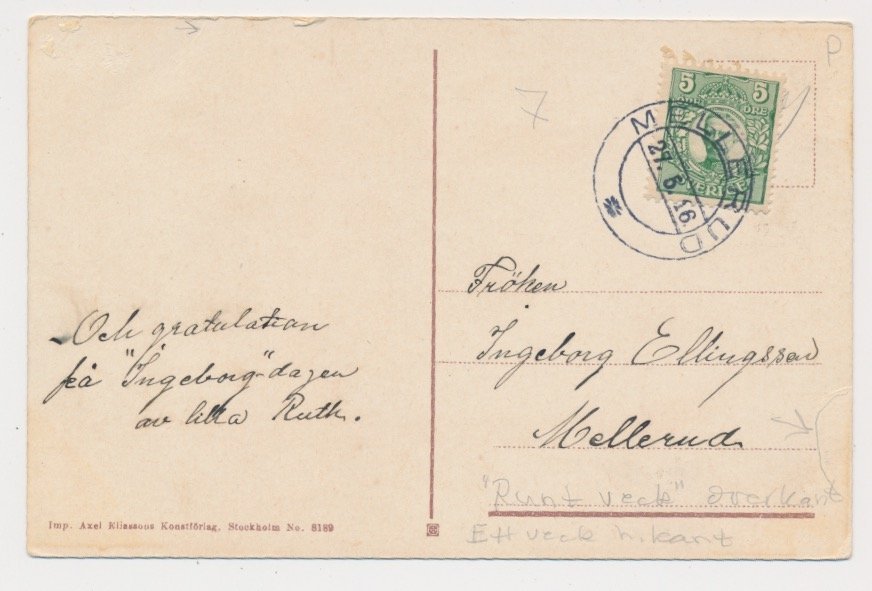 Och gratulation
på "Ingeborg"-dagen
av lilla Ruth.
Imp. Axel Eliassons Konstförlag, Stockholm No. 8189
7
P
5 5
ÖRE ÖRE
SVERIGE
MELLERUD
27. 5. 16.
Fröken
Ingeborg Ellingssen
Mellerud
"Runt veck" överkant
Ett veck h. kant